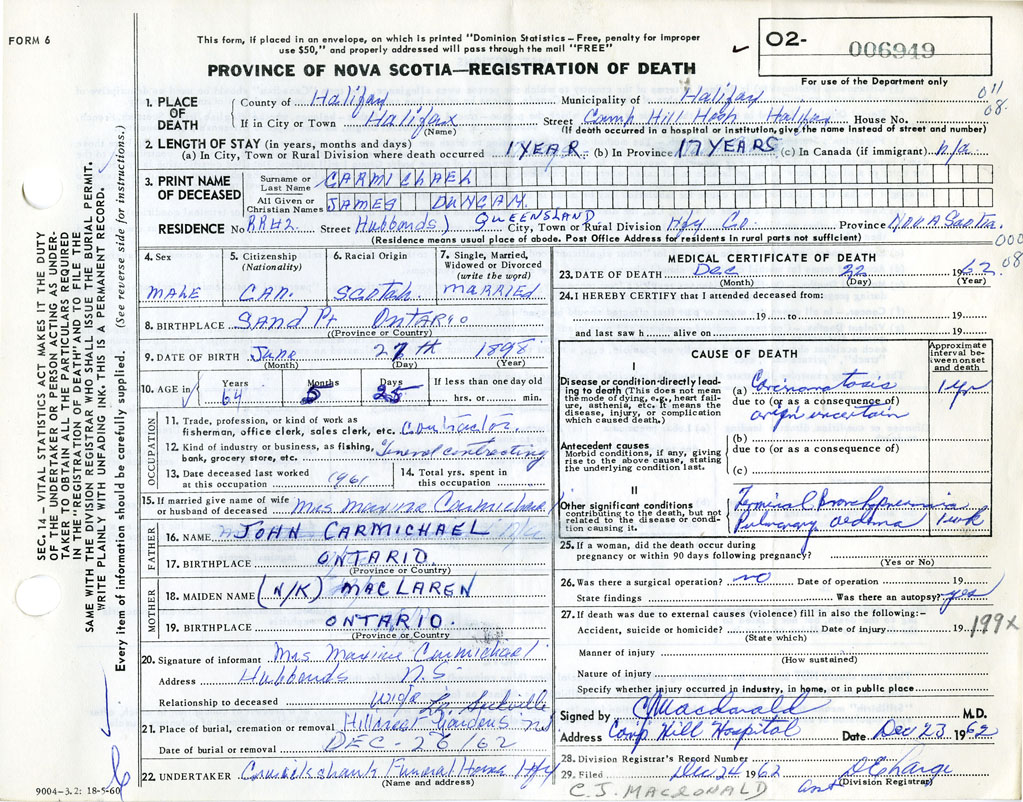 FORM 6
This form, if placed in an envelope, on which is printed "Dominion Statistics – Free, penalty for improper
use $50," and properly addressed will pass through the mail "FREE"
O2- 006949
PROVINCE OF NOVA SCOTIA—REGISTRATION OF DEATH
For use of the Department only
1. PLACE OF DEATH
County of Halifax Municipality of Halifax 011
If in City or Town Halifax Street Camp Hill Hosp Halifax House No. 08
(Name) (If death occurred in a hospital or institution, give the name instead of street and number)
2. LENGTH OF STAY (in years, months and days)
(a) In City, Town or Rural Division where death occurred 1 YEAR (b) In Province 17 YEARS (c) In Canada (if immigrant) n/a
3. PRINT NAME OF DECEASED
Surname or Last Name CARMICHAEL
All Given or Christian Names JAMES DUNCAN
RESIDENCE No RR#2 Street Hubbards) QUEENSLAND City, Town or Rural Division Hfx Co. Province NOVA Scotia
(Residence means usual place of abode. Post Office Address for residents in rural parts not sufficient)
000
08
4. Sex MALE
5. Citizenship (Nationality) CAN.
6. Racial Origin Scotch
7. Single, Married, Widowed or Divorced (write the word) MARRIED
8. BIRTHPLACE SAND Pt ONTARIO
(Province or Country)
9. DATE OF BIRTH June 27th 1898
(Month) (Day) (Year)
10. AGE in Years 64 Months 5 Days 25 If less than one day old
hrs. or min.
OCCUPATION
11. Trade, profession, or kind of work as
fisherman, office clerk, sales clerk, etc. Contractor
12. Kind of industry or business, as fishing,
bank, grocery store, etc. General contracting
13. Date deceased last worked
at this occupation 1961
14. Total yrs. spent in
this occupation
15. If married give name of wife
or husband of deceased Mrs Maxine Carmichael
FATHER
16. NAME JOHN CARMICHAEL
17. BIRTHPLACE ONTARIO
(Province or Country)
MOTHER
18. MAIDEN NAME (N/K) MACLAREN
19. BIRTHPLACE ONTARIO.
(Province or Country
20. Signature of informant Mrs Maxine Carmichael
Address Hubbards N.S.
Relationship to deceased wife
21. Place of burial, cremation or removal Hillcrest Gardens NS
Lr. Sackville
Date of burial or removal DEC - 26/62
22. UNDERTAKER Cruickshanks Funeral Home Hfx
(Name and address)
9004-3.2: 18-5-60
MEDICAL CERTIFICATE OF DEATH
23. DATE OF DEATH Dec 22 1962.
(Month) (Day) (Year)
24. I HEREBY CERTIFY that I attended deceased from:
19 to 19
and last saw h alive on 19
CAUSE OF DEATH
Approximate interval between onset and death
I
Disease or condition directly leading to death (This does not mean the mode of dying, e.g., heart failure, asthenia, etc. It means the disease, injury, or complication which caused death.)
(a) Carcinomatosis 1 yr
due to (or as a consequence of)
origin uncertain
Antecedent causes
Morbid conditions, if any, giving rise to the above cause, stating the underlying condition last.
(b)
due to (or as a consequence of)
(c)
II
Other significant conditions
contributing to the death, but not related to the disease or condition causing it.
Terminal Bronchopneumonia
Pulmonary oedema 1 wk
25. If a woman, did the death occur during
pregnancy or within 90 days following pregnancy?
(Yes or No)
26. Was there a surgical operation? no Date of operation 19
State findings Was there an autopsy? yes
27. If death was due to external causes (violence) fill in also the following:–
Accident, suicide or homicide? Date of injury 19
(State which)
199X
Manner of injury
(How sustained)
Nature of injury
Specify whether injury occurred in industry, in home, or in public place
Signed by CJMacdonald M.D.
Address Camp Hill Hospital Date Dec 23 1962
28. Division Registrar's Record Number
29. Filed Dec 24 1962
(Division Registrar)
C. J. MACDONALD
SEC. 14 – VITAL STATISTICS ACT MAKES IT THE DUTY
OF THE UNDERTAKER OR PERSON ACTING AS UNDER-
TAKER TO OBTAIN ALL THE PARTICULARS REQUIRED
IN THE "REGISTRATION OF DEATH" AND TO FILE THE
SAME WITH THE DIVISION REGISTRAR WHO SHALL ISSUE THE BURIAL PERMIT.
WRITE PLAINLY WITH UNFADING INK. THIS IS A PERMANENT RECORD.
Every item of information should be carefully supplied. (See reverse side for instructions.)